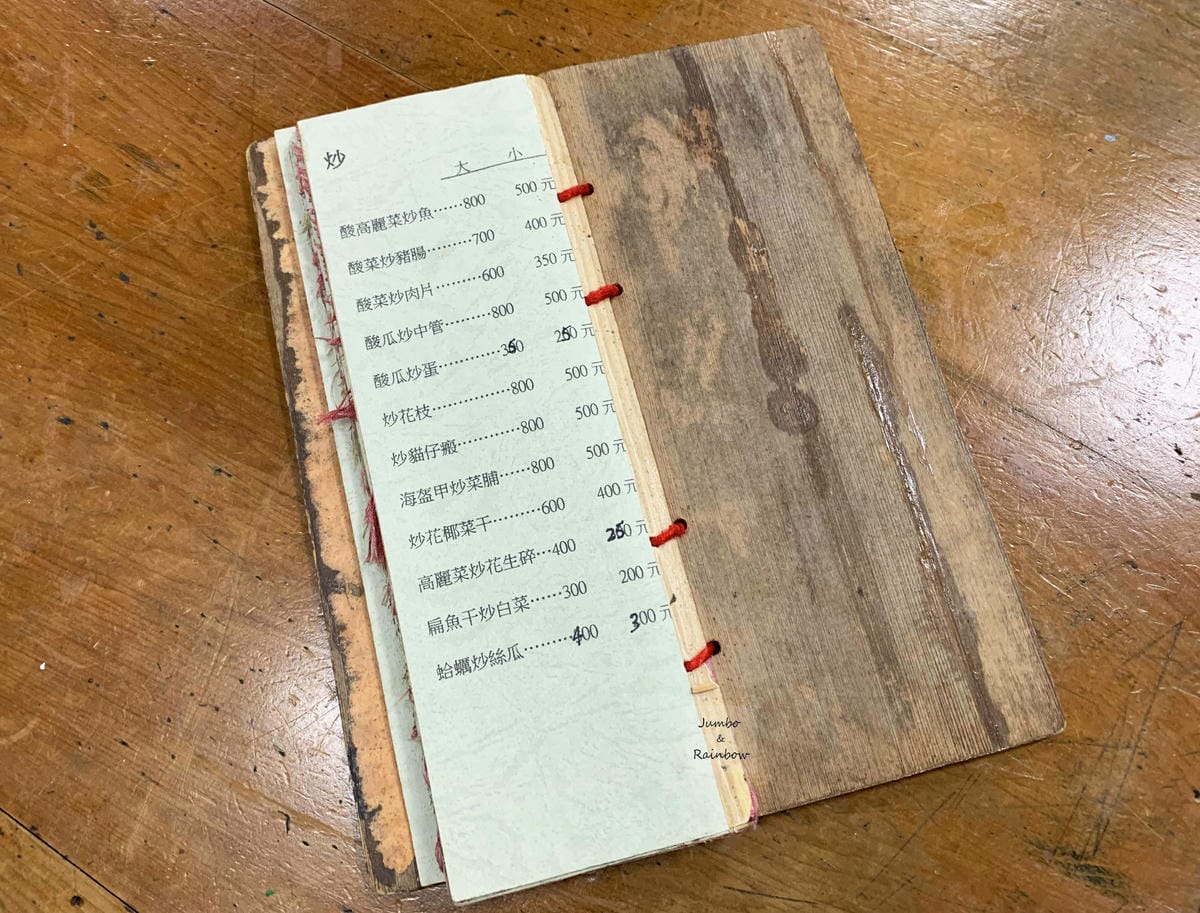 炒
大 小
酸高麗菜炒魚……800 500 元
酸菜炒豬腸………700 400 元
酸菜炒肉片………600 350 元
酸瓜炒中管………800 500 元
酸瓜炒蛋…………350 250 元
炒花枝……………800 500 元
炒貓仔…………800 500 元
海盔甲炒菜脯……800 500 元
炒花椰菜干………600 400 元
高麗菜炒花生碎…400 250 元
扁魚干炒白菜……300 200 元
蛤蠣炒絲瓜………400 300 元
Jumbo
&
Rainbow